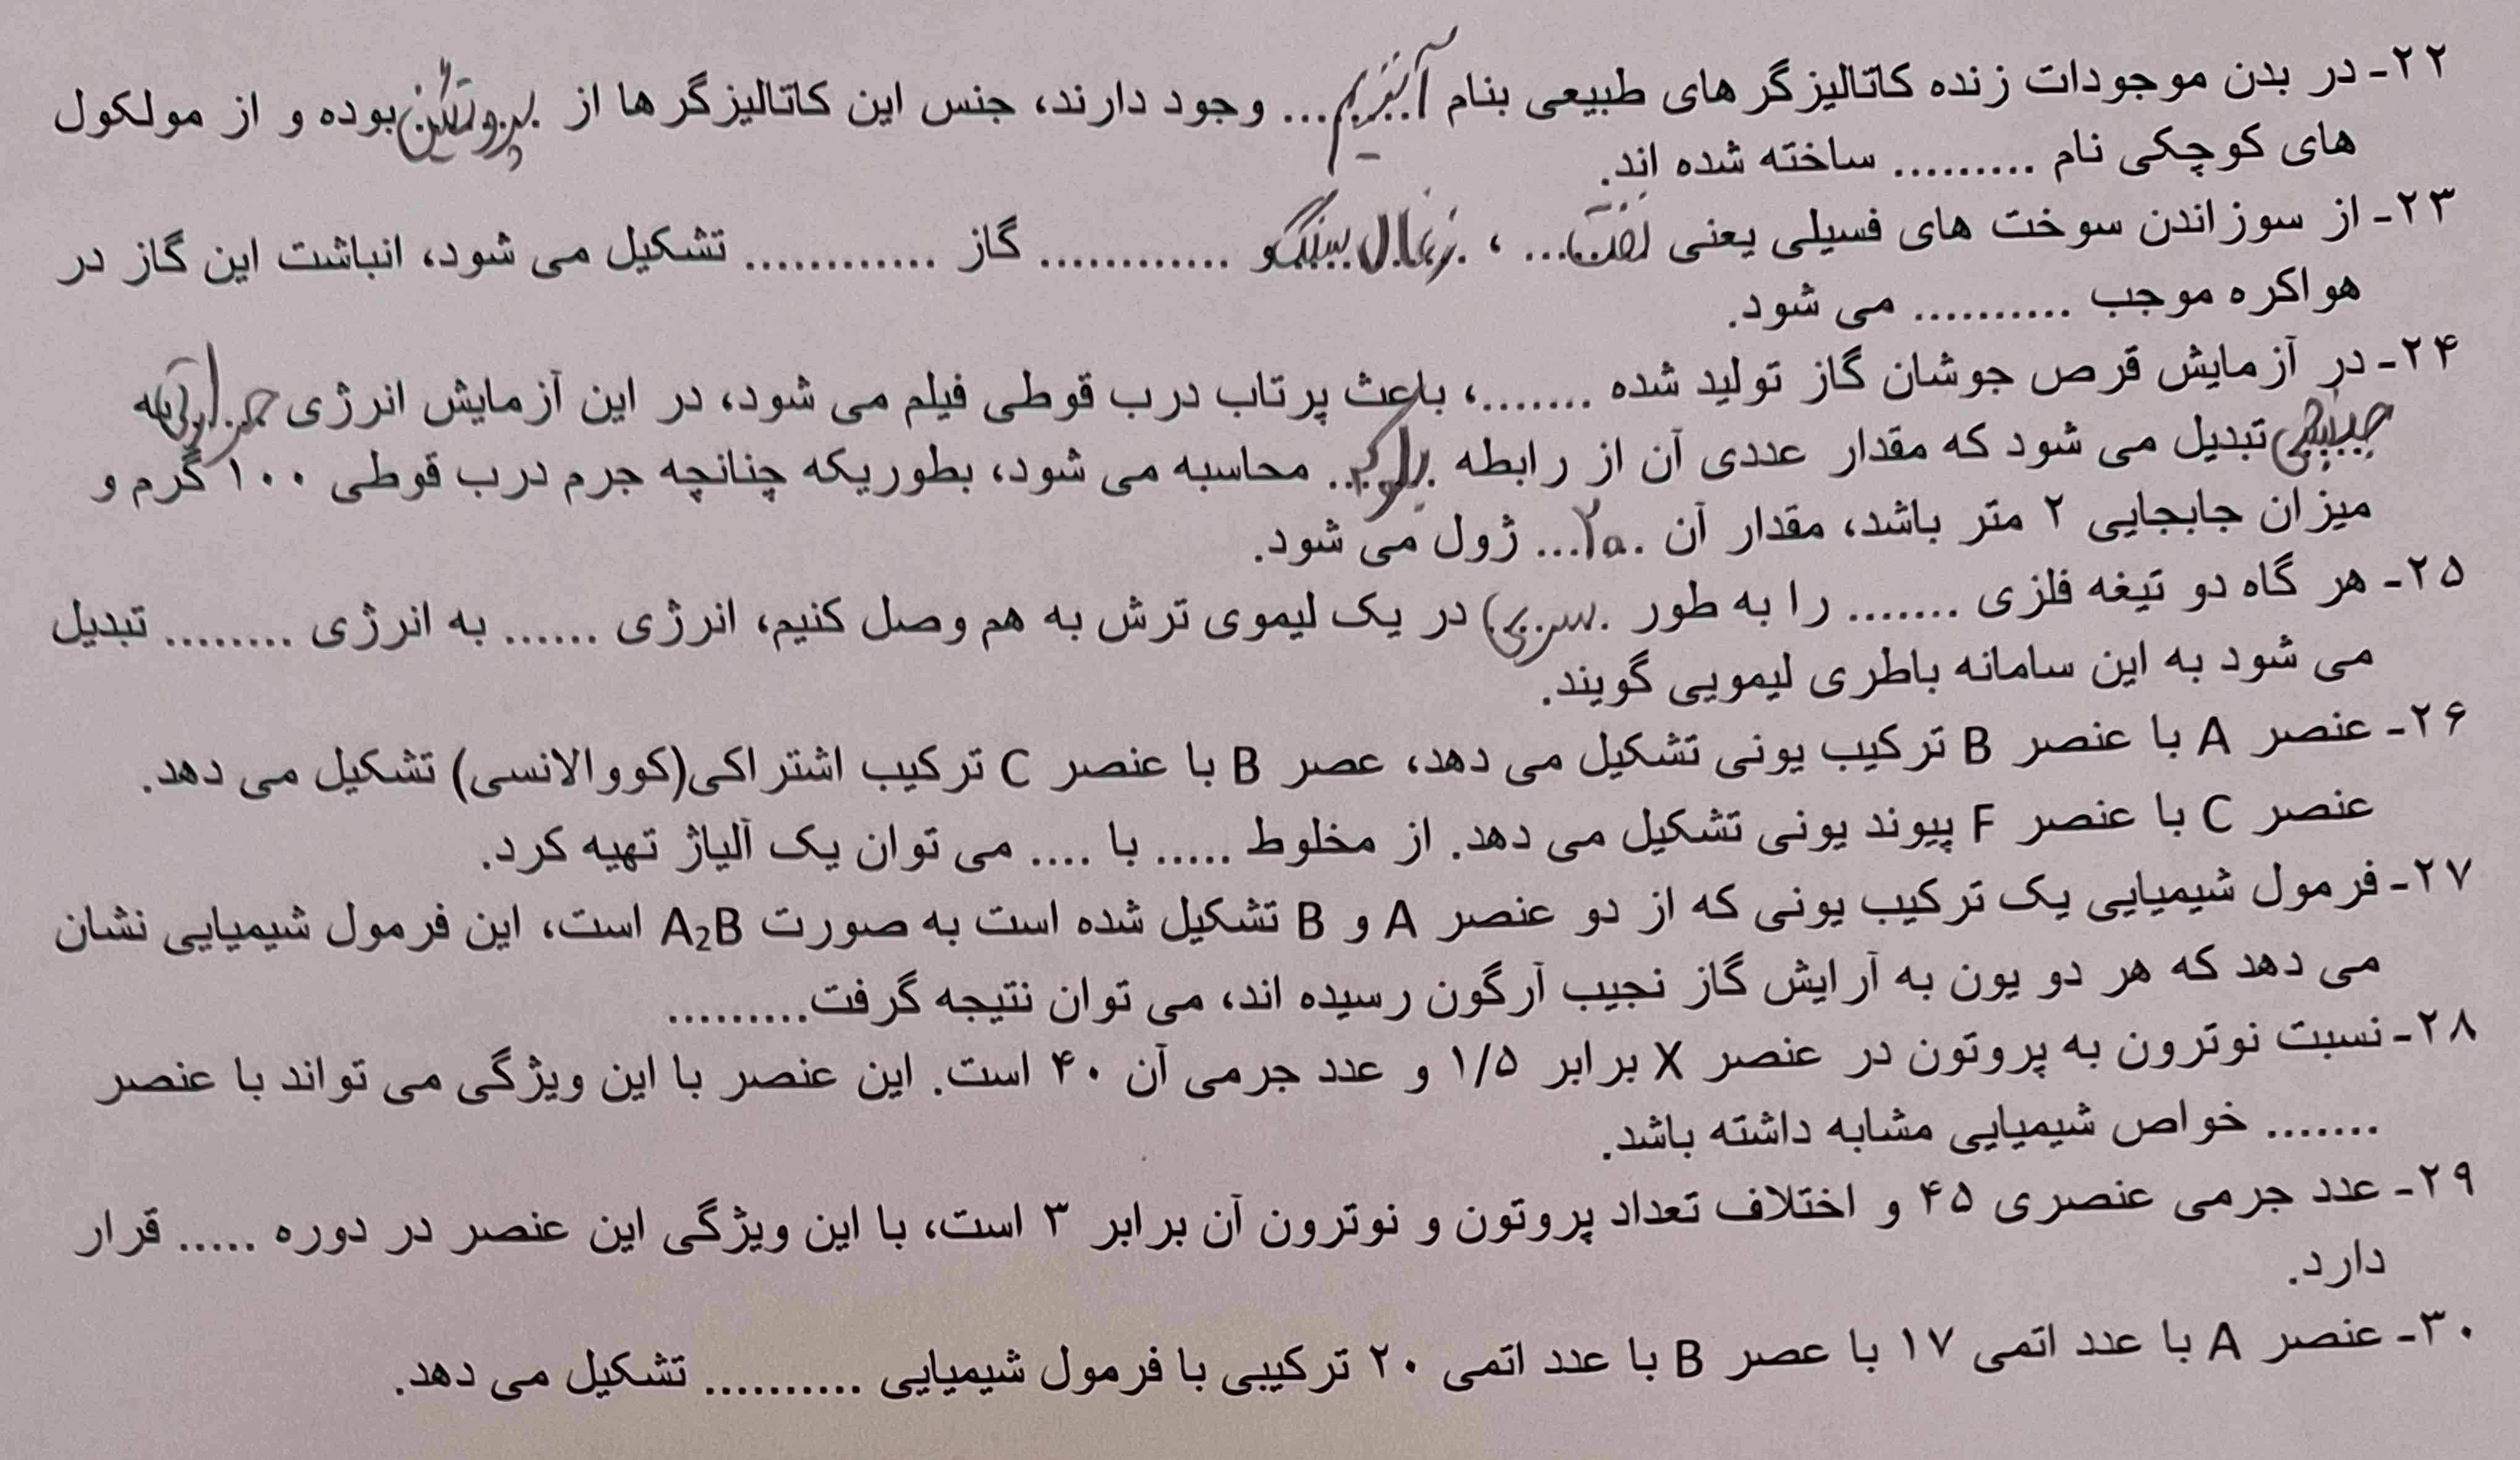 ۲۲- در بدن موجودات زنده کاتالیزگر های طبیعی بنام آنزیم... وجود دارند، جنس این کاتالیزگر ها از پروتئین بوده و از مولکول
های کوچکی نام ......... ساخته شده اند.
۲۳- از سوزاندن سوخت های فسیلی یعنی نفت... ، زغال سنگ و ............ گاز ............ تشکیل می شود، انباشت این گاز در
هواکره موجب .......... می شود.
۲۴- در آزمایش قرص جوشان گاز تولید شده .......، باعث پرتاب درب قوطی فیلم می شود، در این آزمایش انرژی به
جنبشی تبدیل می شود که مقدار عددی آن از رابطه ... محاسبه می شود، بطوریکه چنانچه جرم درب قوطی ۱۰۰ گرم و
میزان جابجایی ۲ متر باشد، مقدار آن ... ژول می شود.
۲۵- هر گاه دو تیغه فلزی ....... را به طور سری در یک لیموی ترش به هم وصل کنیم، انرژی ...... به انرژی ........ تبدیل
می شود به این سامانه باطری لیمویی گویند.
۲۶- عنصر A با عنصر B ترکیب یونی تشکیل می دهد، عصر B با عنصر C ترکیب اشتراکی(کووالانسی) تشکیل می دهد.
عنصر C با عنصر F پیوند یونی تشکیل می دهد. از مخلوط ..... با .... می توان یک آلیاژ تهیه کرد.
۲۷- فرمول شیمیایی یک ترکیب یونی که از دو عنصر A و B تشکیل شده است به صورت A₂B است، این فرمول شیمیایی نشان
می دهد که هر دو یون به آرایش گاز نجیب آرگون رسیده اند، می توان نتیجه گرفت.........
۲۸- نسبت نوترون به پروتون در عنصر X برابر ۱/۵ و عدد جرمی آن ۴۰ است. این عنصر با این ویژگی می تواند با عنصر
....... خواص شیمیایی مشابه داشته باشد.
۲۹- عدد جرمی عنصری ۴۵ و اختلاف تعداد پروتون و نوترون آن برابر ۳ است، با این ویژگی این عنصر در دوره ..... قرار
دارد.
۳۰- عنصر A با عدد اتمی ۱۷ با عصر B با عدد اتمی ۲۰ ترکیبی با فرمول شیمیایی .......... تشکیل می دهد.